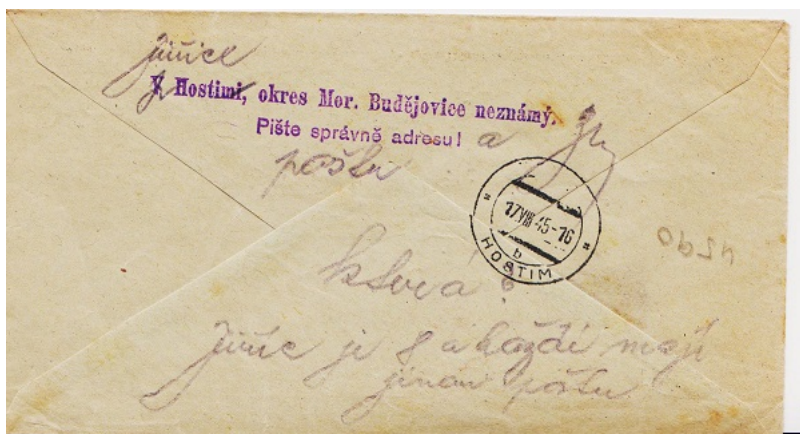 Jiřice
V Hostimi, okres Mor. Budějovice neznámý.
Pište správně adresu! a
poštu
17VIII 45-16
b
HOSTIM
která?
Jiřic je 8 a každé mají
jinou poštu